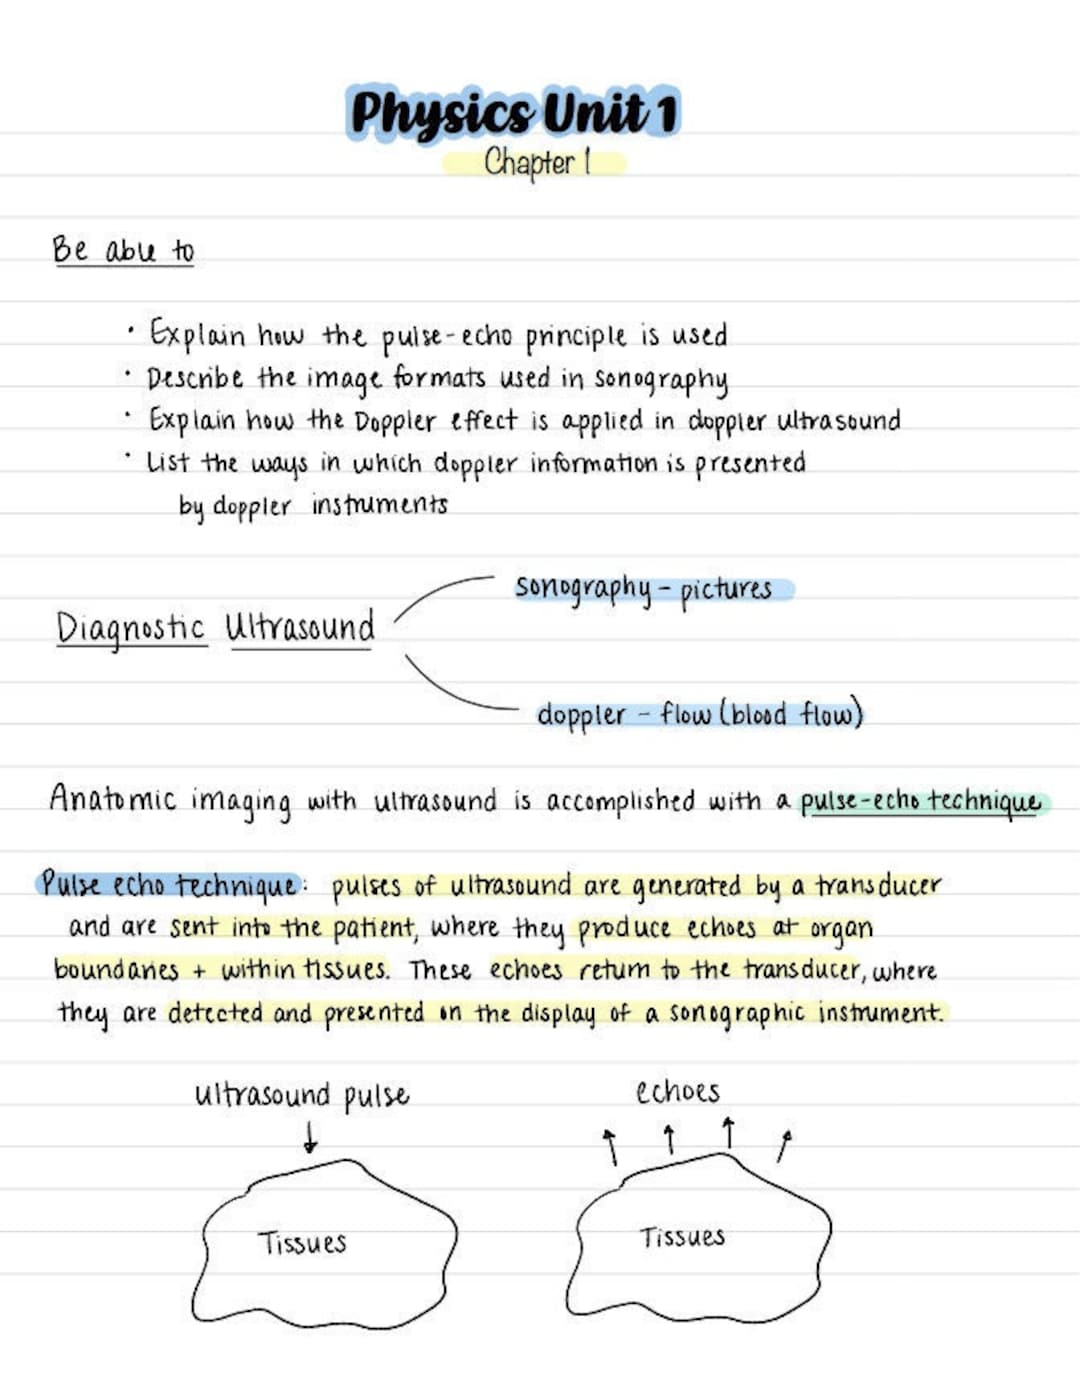 Physics Unit 1
Chapter 1
Be able to
· Explain how the pulse-echo principle is used
· Describe the image formats used in sonography
· Explain how the Doppler effect is applied in doppler ultrasound
· List the ways in which doppler information is presented
by doppler instruments
sonography - pictures
Diagnostic Ultrasound
doppler - flow (blood flow)
Anatomic imaging with ultrasound is accomplished with a pulse-echo technique
Pulse echo technique: pulses of ultrasound are generated by a transducer
and are sent into the patient, where they produce echoes at organ
boundaries + within tissues. These echoes return to the transducer, where
they are detected and presented on the display of a sonographic instrument.
ultrasound pulse
echoes
Tissues
Tissues